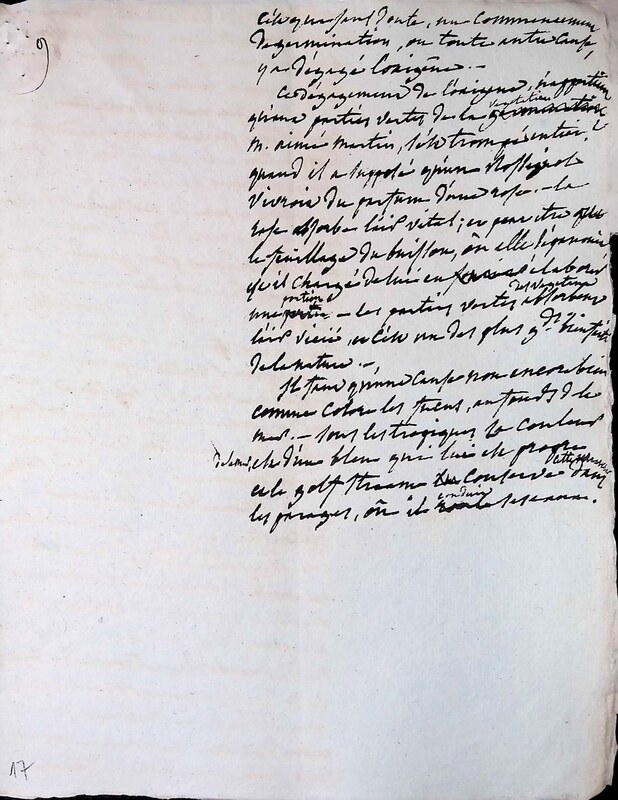 9
c'est que sans doute, un commencement
de germination, ou toute autre cause,
y a dégagé l'oxigène. -
Ce dégagement de l'oxigène, n'appartient
qu'aux parties vertes de la végétation
m. aimé martin, s'est trompé
quand il a supposé qu'un Rossignol
vivroit du parfum d'une rose. - la
rose absorbe l'air vital; et peut etre que
le feuillage du buisson, où elle s'épanouit
est il chargé de lui en élaborer
une portion - les parties vertes des végétaux absorbent
l'air vicié, et c'est un des plus gds bienfaits
de la nature. -
Il faut qu'une cause non encore bien
connue colore les fucus, au fonds de la
mer. - sous les tropiques la couleur
de la mer, est d'un bleu qui lui est propre
et le golf stream conserve cette dans
les parages, où il conduit ses eaux.
17